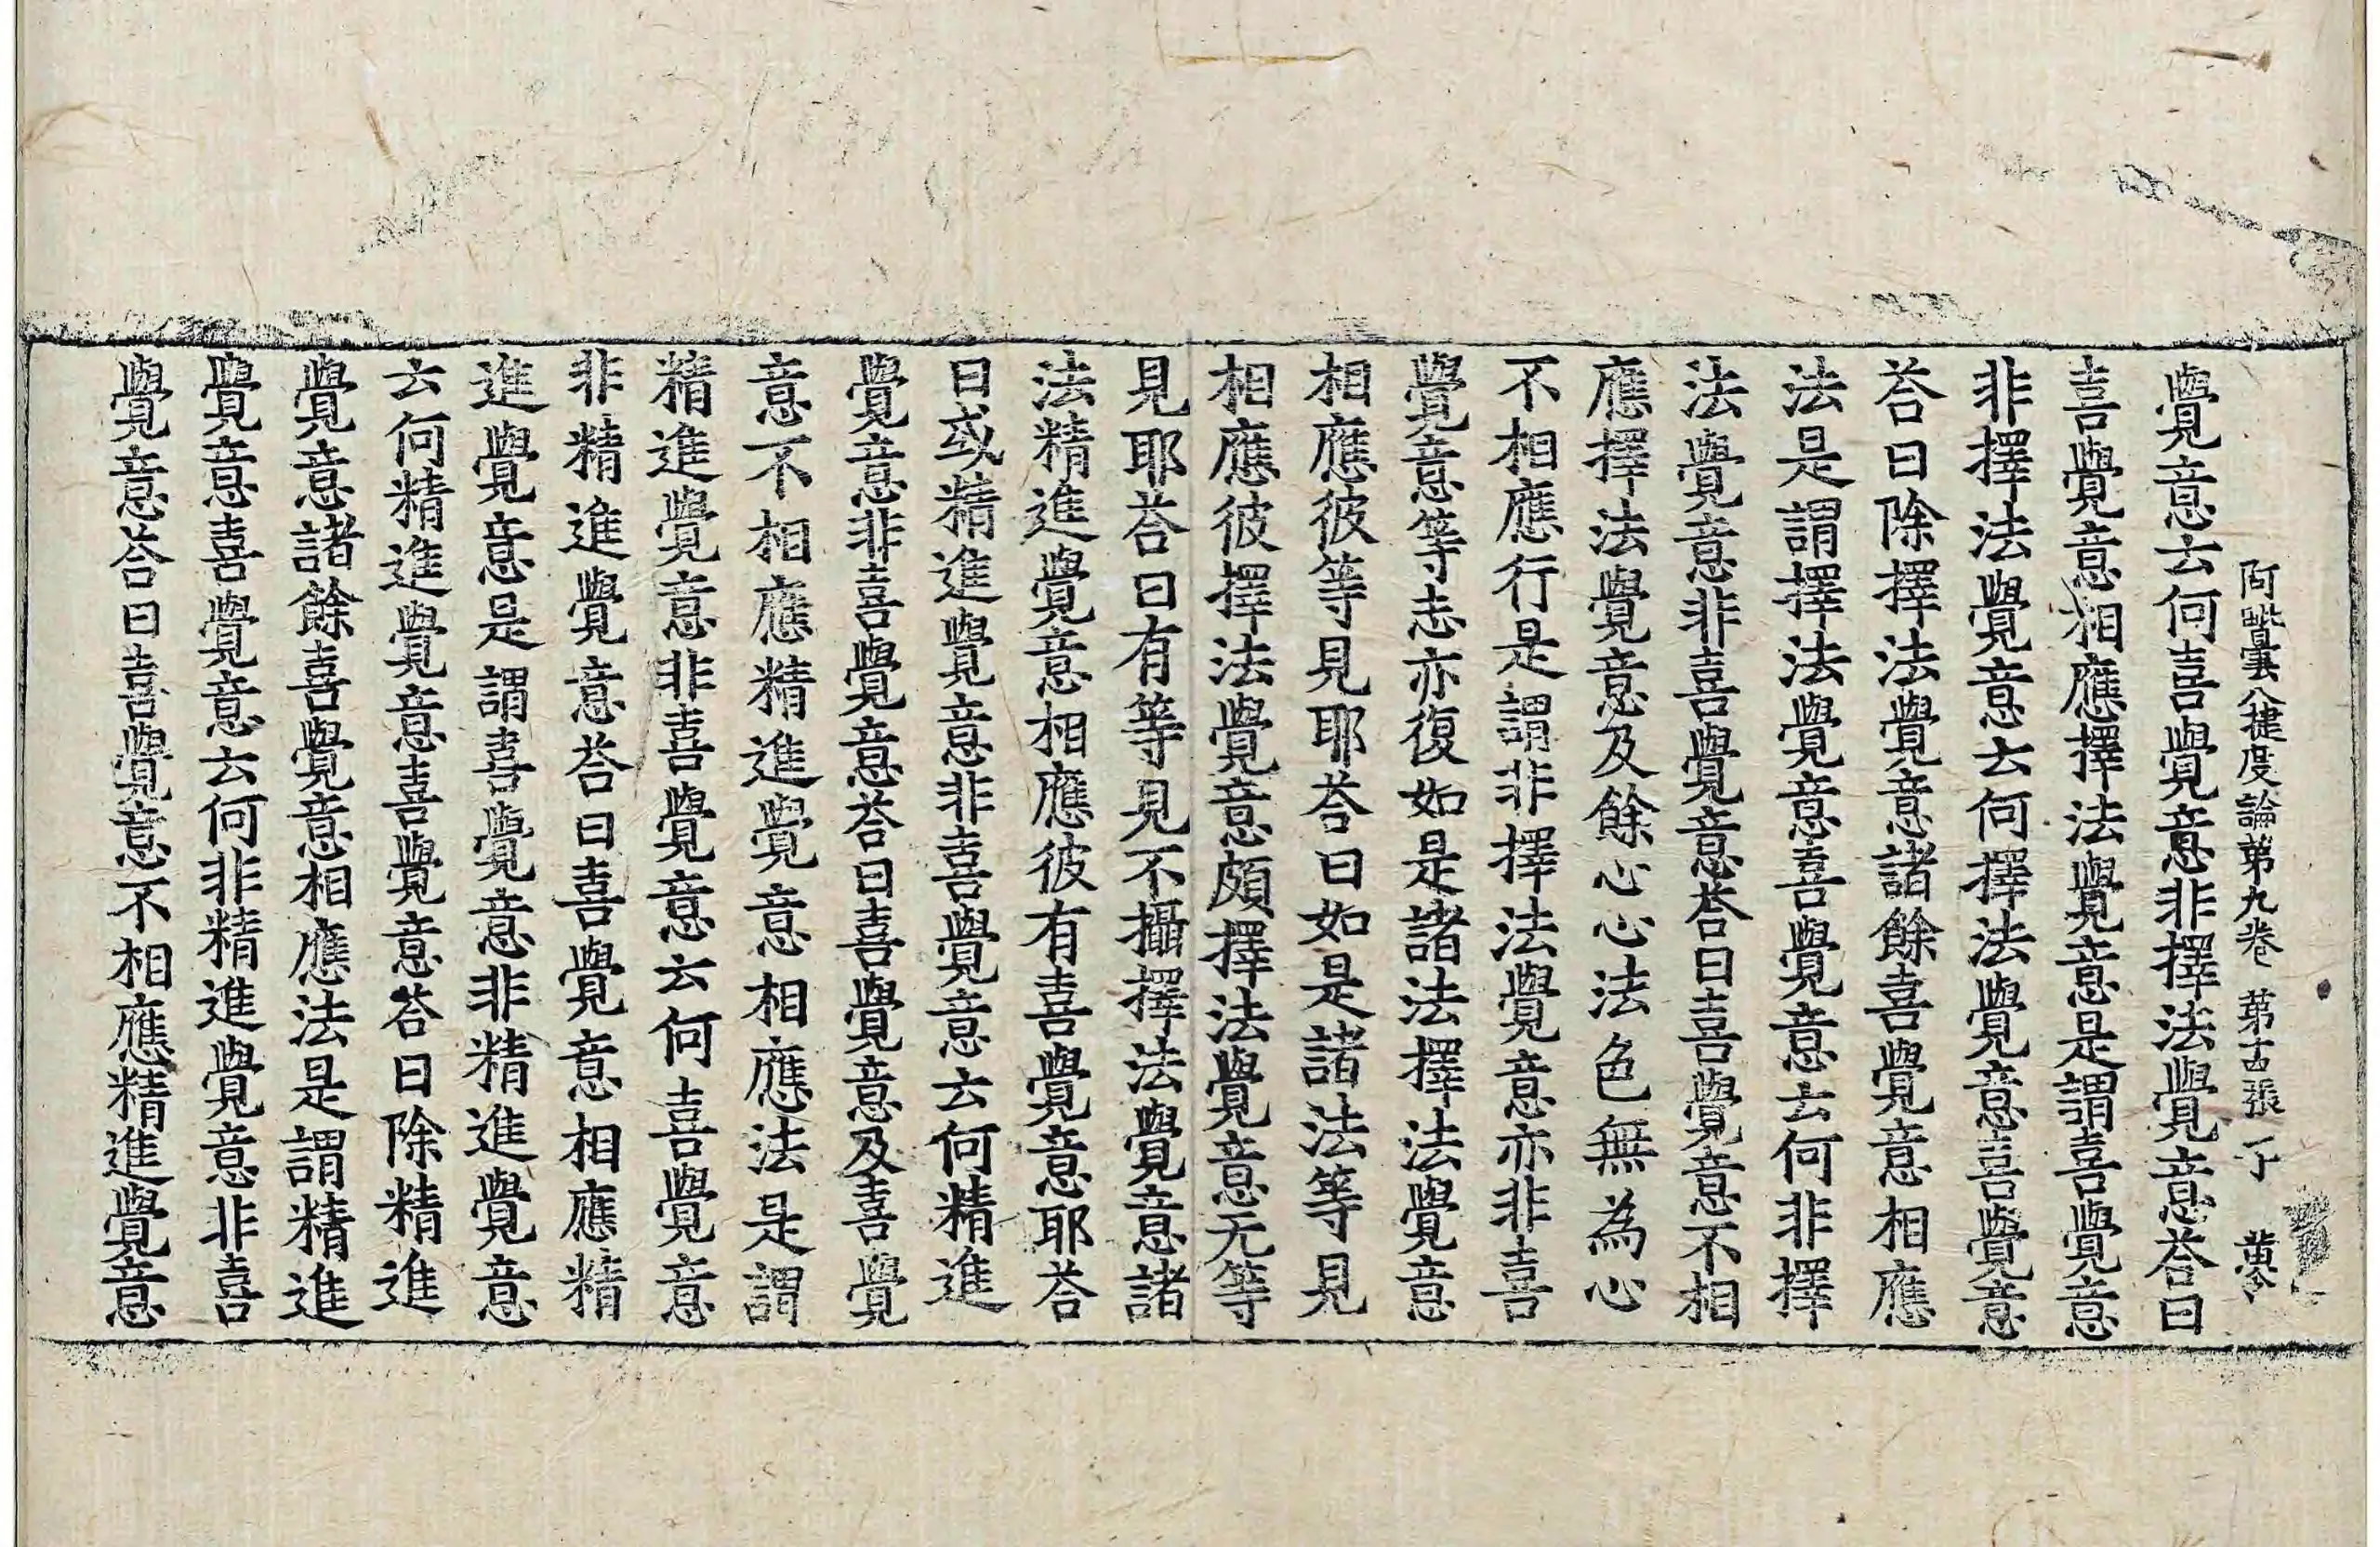 阿毗曇八揵度論第九卷 第十四張 丁 黃令
覺意云何喜覺意非擇法覺意荅曰
喜覺意相應擇法覺意是謂喜覺意
非擇法覺意云何擇法覺意喜覺意
荅曰除擇法覺意諸餘喜覺意相應
法是謂擇法覺意喜覺意云何非擇
法覺意非喜覺意荅曰喜覺意不相
應擇法覺意及餘心心法色無為心
不相應行是謂非擇法覺意亦非喜
覺意等志亦復如是諸法擇法覺意
相應彼等見耶荅曰如是諸法等見
相應彼擇法覺意頗擇法覺意无等
見耶荅曰有等見不攝擇法覺意諸
法精進覺意相應彼有喜覺意耶荅
曰或精進覺意非喜覺意云何精進
覺意非喜覺意荅曰喜覺意及喜覺
意不相應精進覺意相應法是謂
精進覺意非喜覺意云何喜覺意
非精進覺意荅曰喜覺意相應精
進覺意是謂喜覺意非精進覺意
云何精進覺意喜覺意荅曰除精進
覺意諸餘喜覺意相應法是謂精進
覺意喜覺意云何非精進覺意非喜
覺意荅曰喜覺意不相應精進覺意